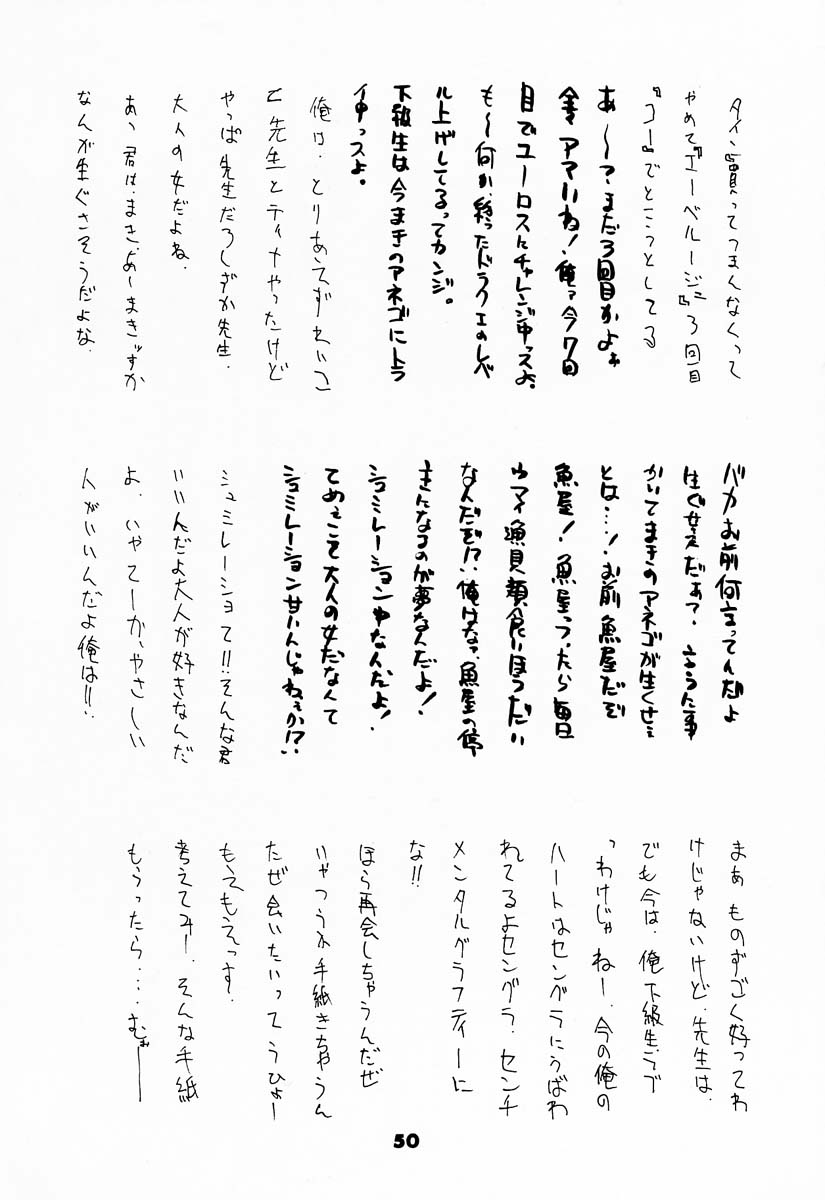 タイン買ってつまんなくって
やめて『エーベルージュ』3回目
『コー』でところっとしてる
あ〜？まだ3回目かよぉ
金マアマいね！俺ァ今7回
目でユーロスにチャレンジ中ッスよ。
も〜何か、終ったドラクエのレベ
ル上げしてるってカンジ。
下級生は今まきのアネゴにトラ
イ中ッスよ。
俺は、とりあえずれいこ
先生とティナやったけど
やっぱ先生だろしずか先生.
大人の女だよね.
あっ君は、まき、めーまきッすか
なんか生ぐさそうだよな.
バカお前何言ってんだよ
生ぐせえだぁ？言うに事
かいてまきのアネゴが生くせェ
とは…！お前魚屋だぞ
魚屋！魚屋っつったら毎日
ウマイ漁貝類食いほうだい
なんだぞ!?俺はなァ、魚屋の亭
主になるのが夢なんだよ！
シュミレーション中なんだよ！
てめぇこそ大人の女だなんて
シュミレーション甘いんじゃねェか!?
シュミレーショて!!そんな君
いいんだよ大人が好きなんだ
よ、いやてーか、やさしい
人がいいんだよ俺は!!
まあ ものすごく好ってわ
けじゃないけど、先生は、
でも今は、俺下級生って
っわけじゃねー、今の俺の
ハートはセングラにうばわ
れてるよセングラ、センチ
メンタルグラフティーに
な!!
ほら再会しちゃうんだぜ
いやつうか手紙きちゃうん
だぜ会いたいってうひょー
もえもえっす.
考えてみー、そんな手紙
もらったら…むぉーー
50